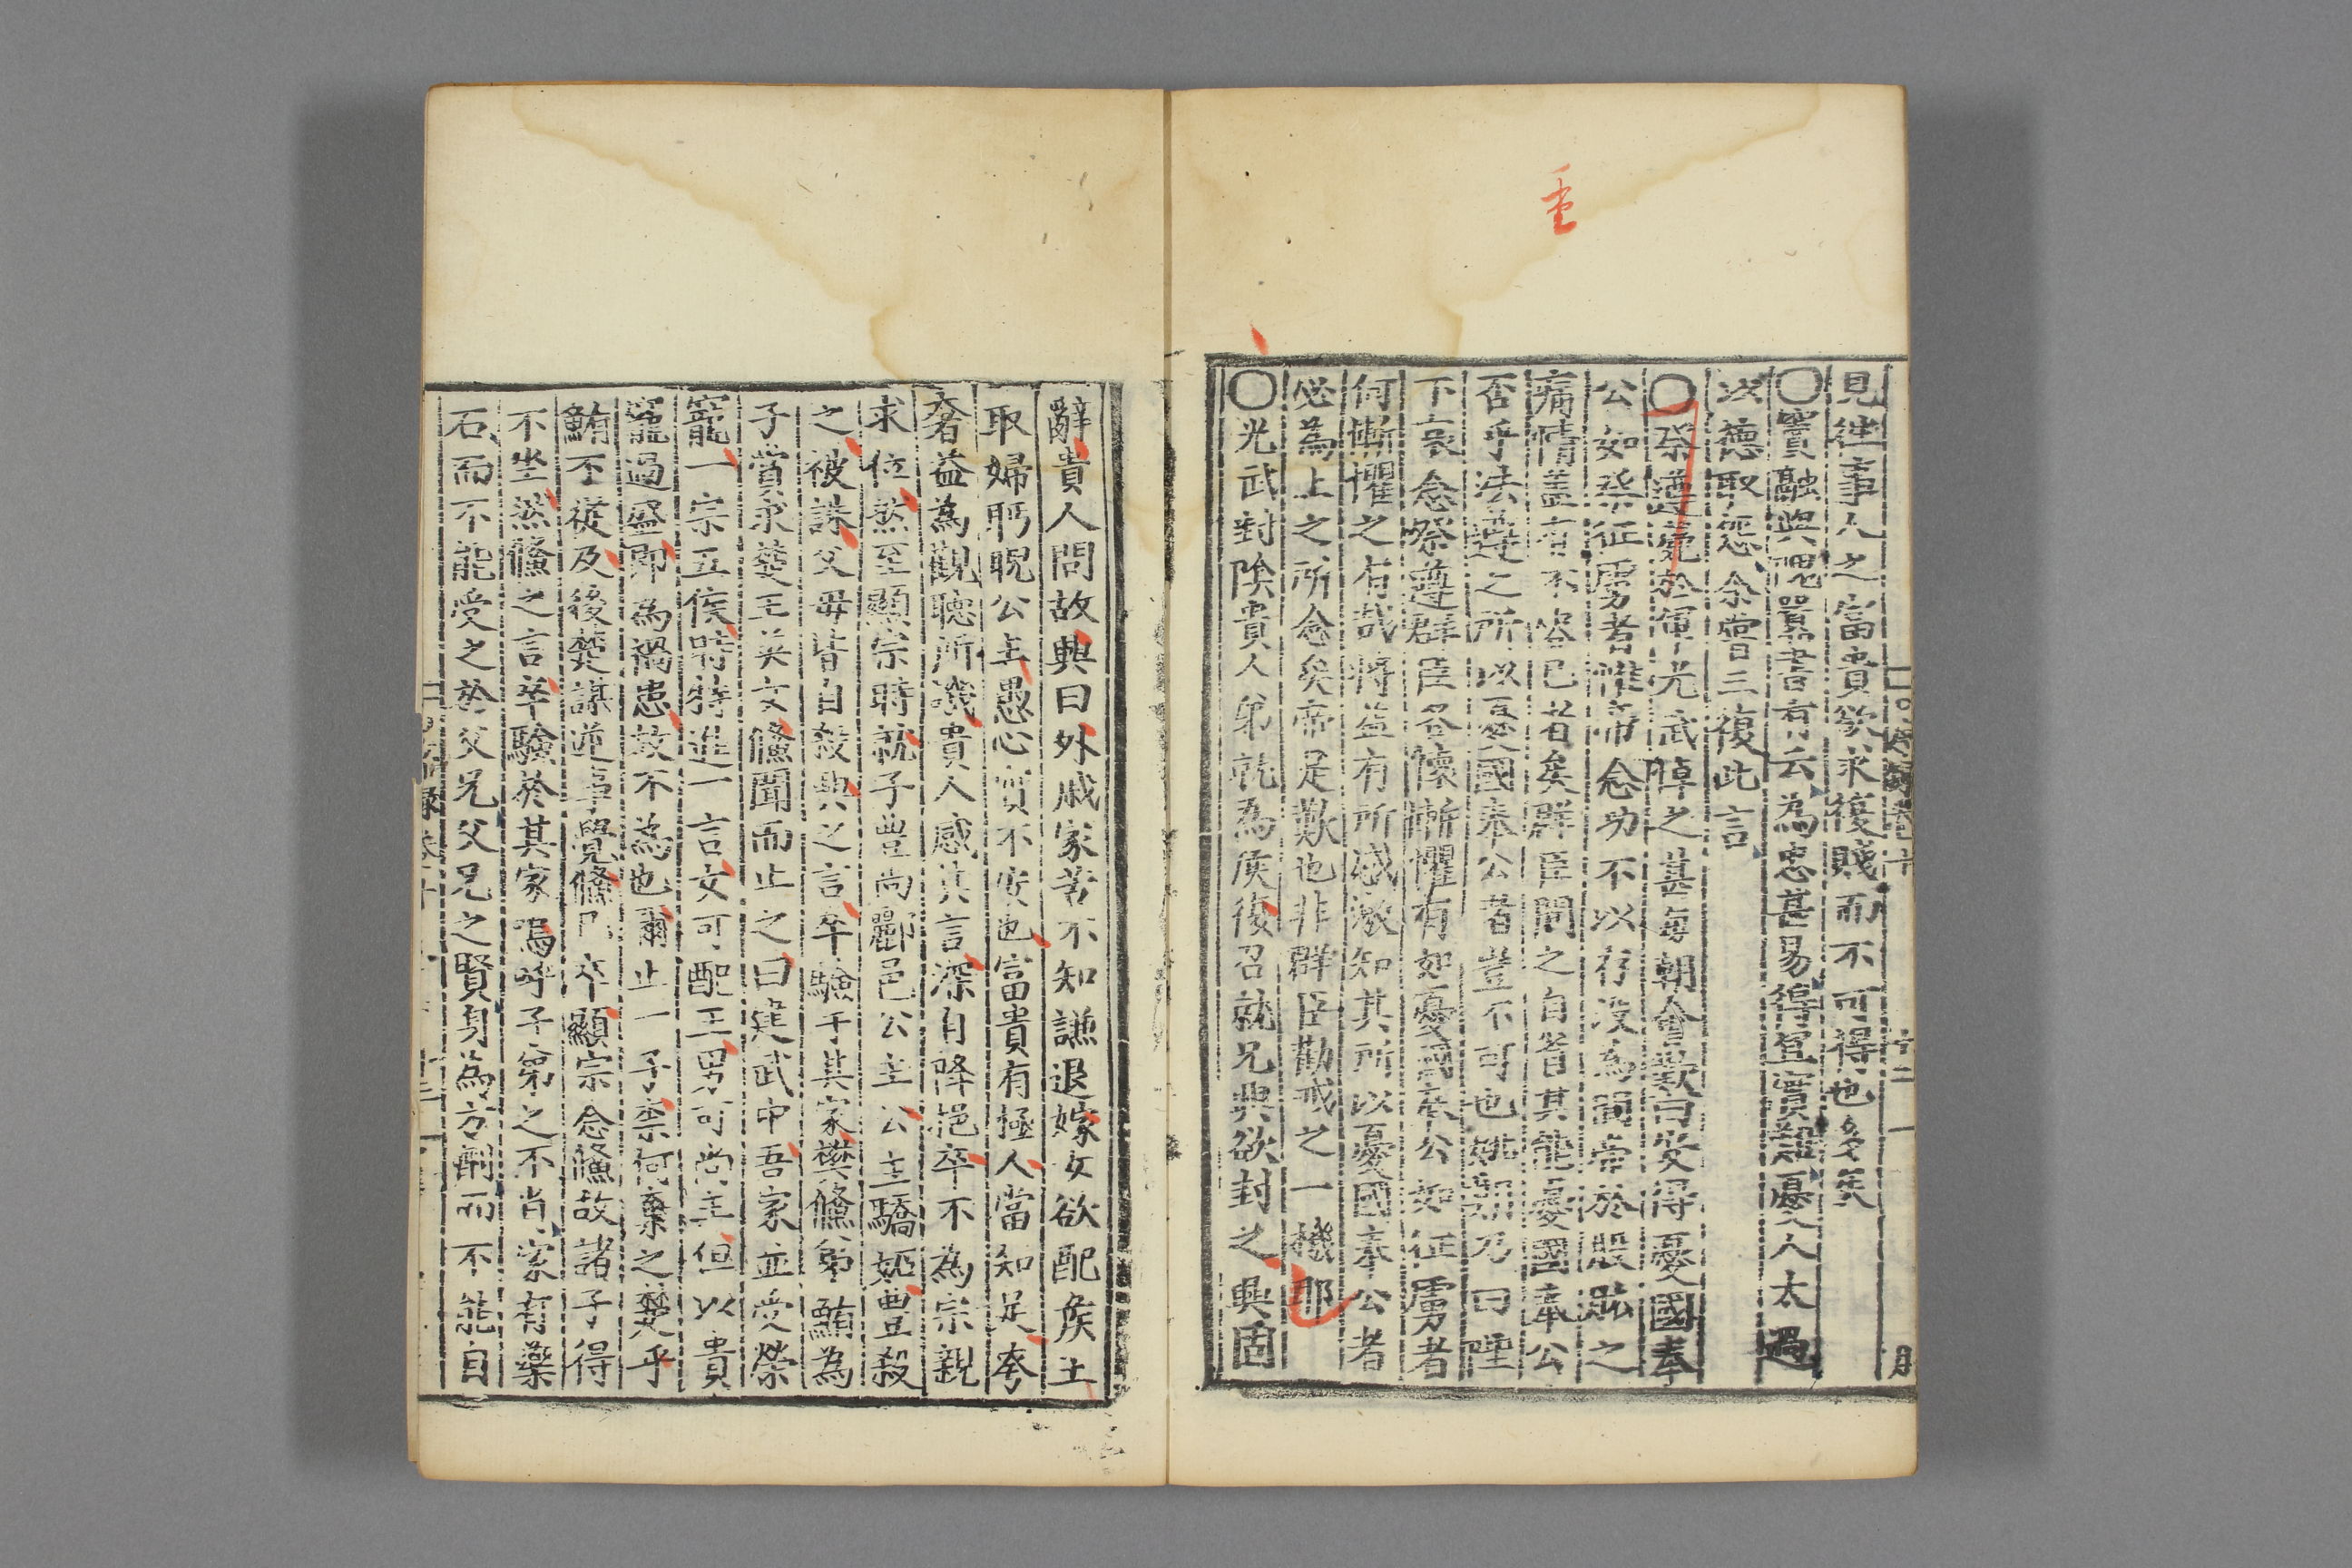 見往事人之富貴欲求復賤而不可得也多矣
〇竇融與隗囂書有云為忠甚易得宜實難憂人太過
以德取怨余嘗三復此言
〇祭遵薨於軍光武悼之甚每朝會歎曰安得憂國奉
公如祭征虜者惟帝念功不以存沒為間常於殷懃之
痛情盖有不容已者矣群臣聞之自省其能憂國奉公
否乎法遵之所以憂國奉公者豈不可也姚期乃曰陛
下哀念祭遵群臣各懷慚懼有如憂國奉公如征虜者
何慚懼之有哉將益有所感激知其所以憂國奉公者
必為上之所念矣帝是歎也非群臣勸戒之一機耶
〇光武封陰貴人弟就為侯復召就兄興欲封之興固
辭貴人問故興曰外戚家苦不知謙退嫁女欲配侯王
取婦眄睨公主愚心實不安也富貴有極人當知足夸
奢益為觀聽所譏貴人感其言深自降挹卒不為宗親
求位然至顯宗時就子豐尚酈邑公主公主驕妬豐殺
之被誅父母皆自殺興之言卒驗于其家樊鯈弟鮪為
子賞求楚王英女鯈聞而止之曰建武中吾家並受榮
寵一宗五侯時特進一言女可配王男可尚主但以貴
寵過盛即為禍患故不為也爾止一子柰何棄之楚乎
鮪不從及後楚謀逆事覺鯈已卒顯宗念鯈故諸子得
不坐然鯈之言卒驗於其家嗚呼子弟之不肖家有藥
石而不能受之於父兄父兄之賢身為方劑而不能自
重